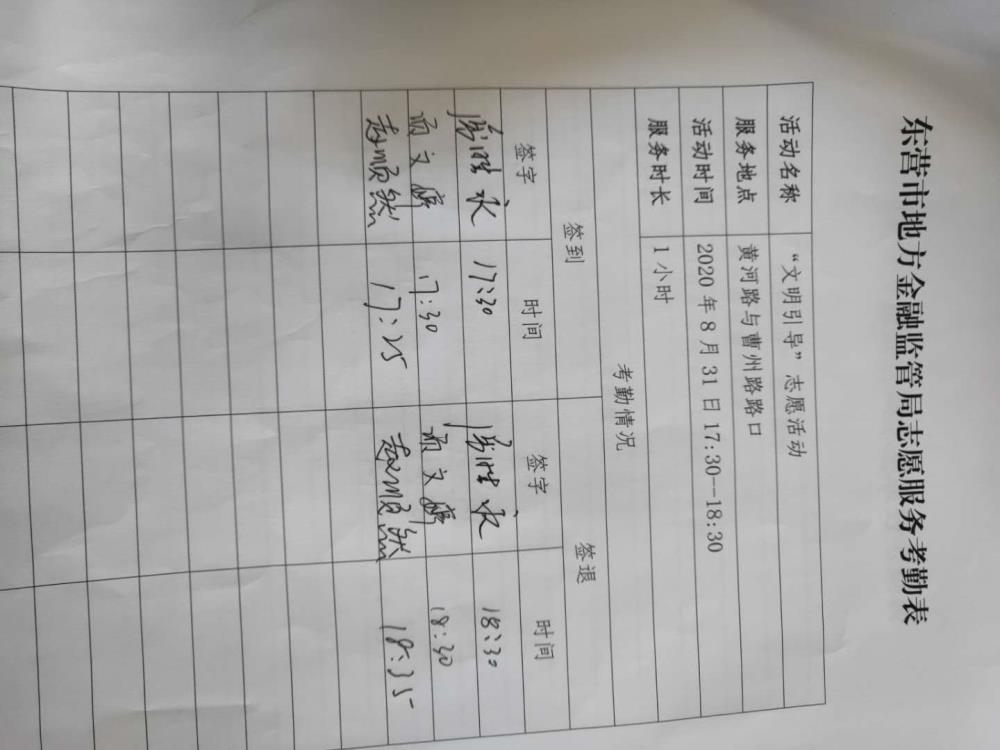 东营市地方金融监管局志愿服务考勤表
活动名称 “文明引导”志愿活动
服务地点 黄河路与曹州路路口
活动时间 2020 年 8 月 31 日 17:30--18:30
服务时长 1 小时
考勤情况
签到 签退
签字 时间 签字 时间
胜永 17:30 胜永 18:30
文 17:30 文 18:30
赵顺然 17:25 赵顺然 18:35